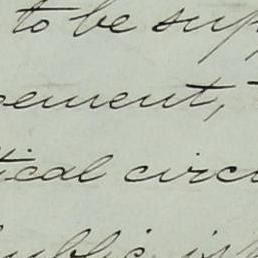 to be sup
ement,
ical circu
ublic is